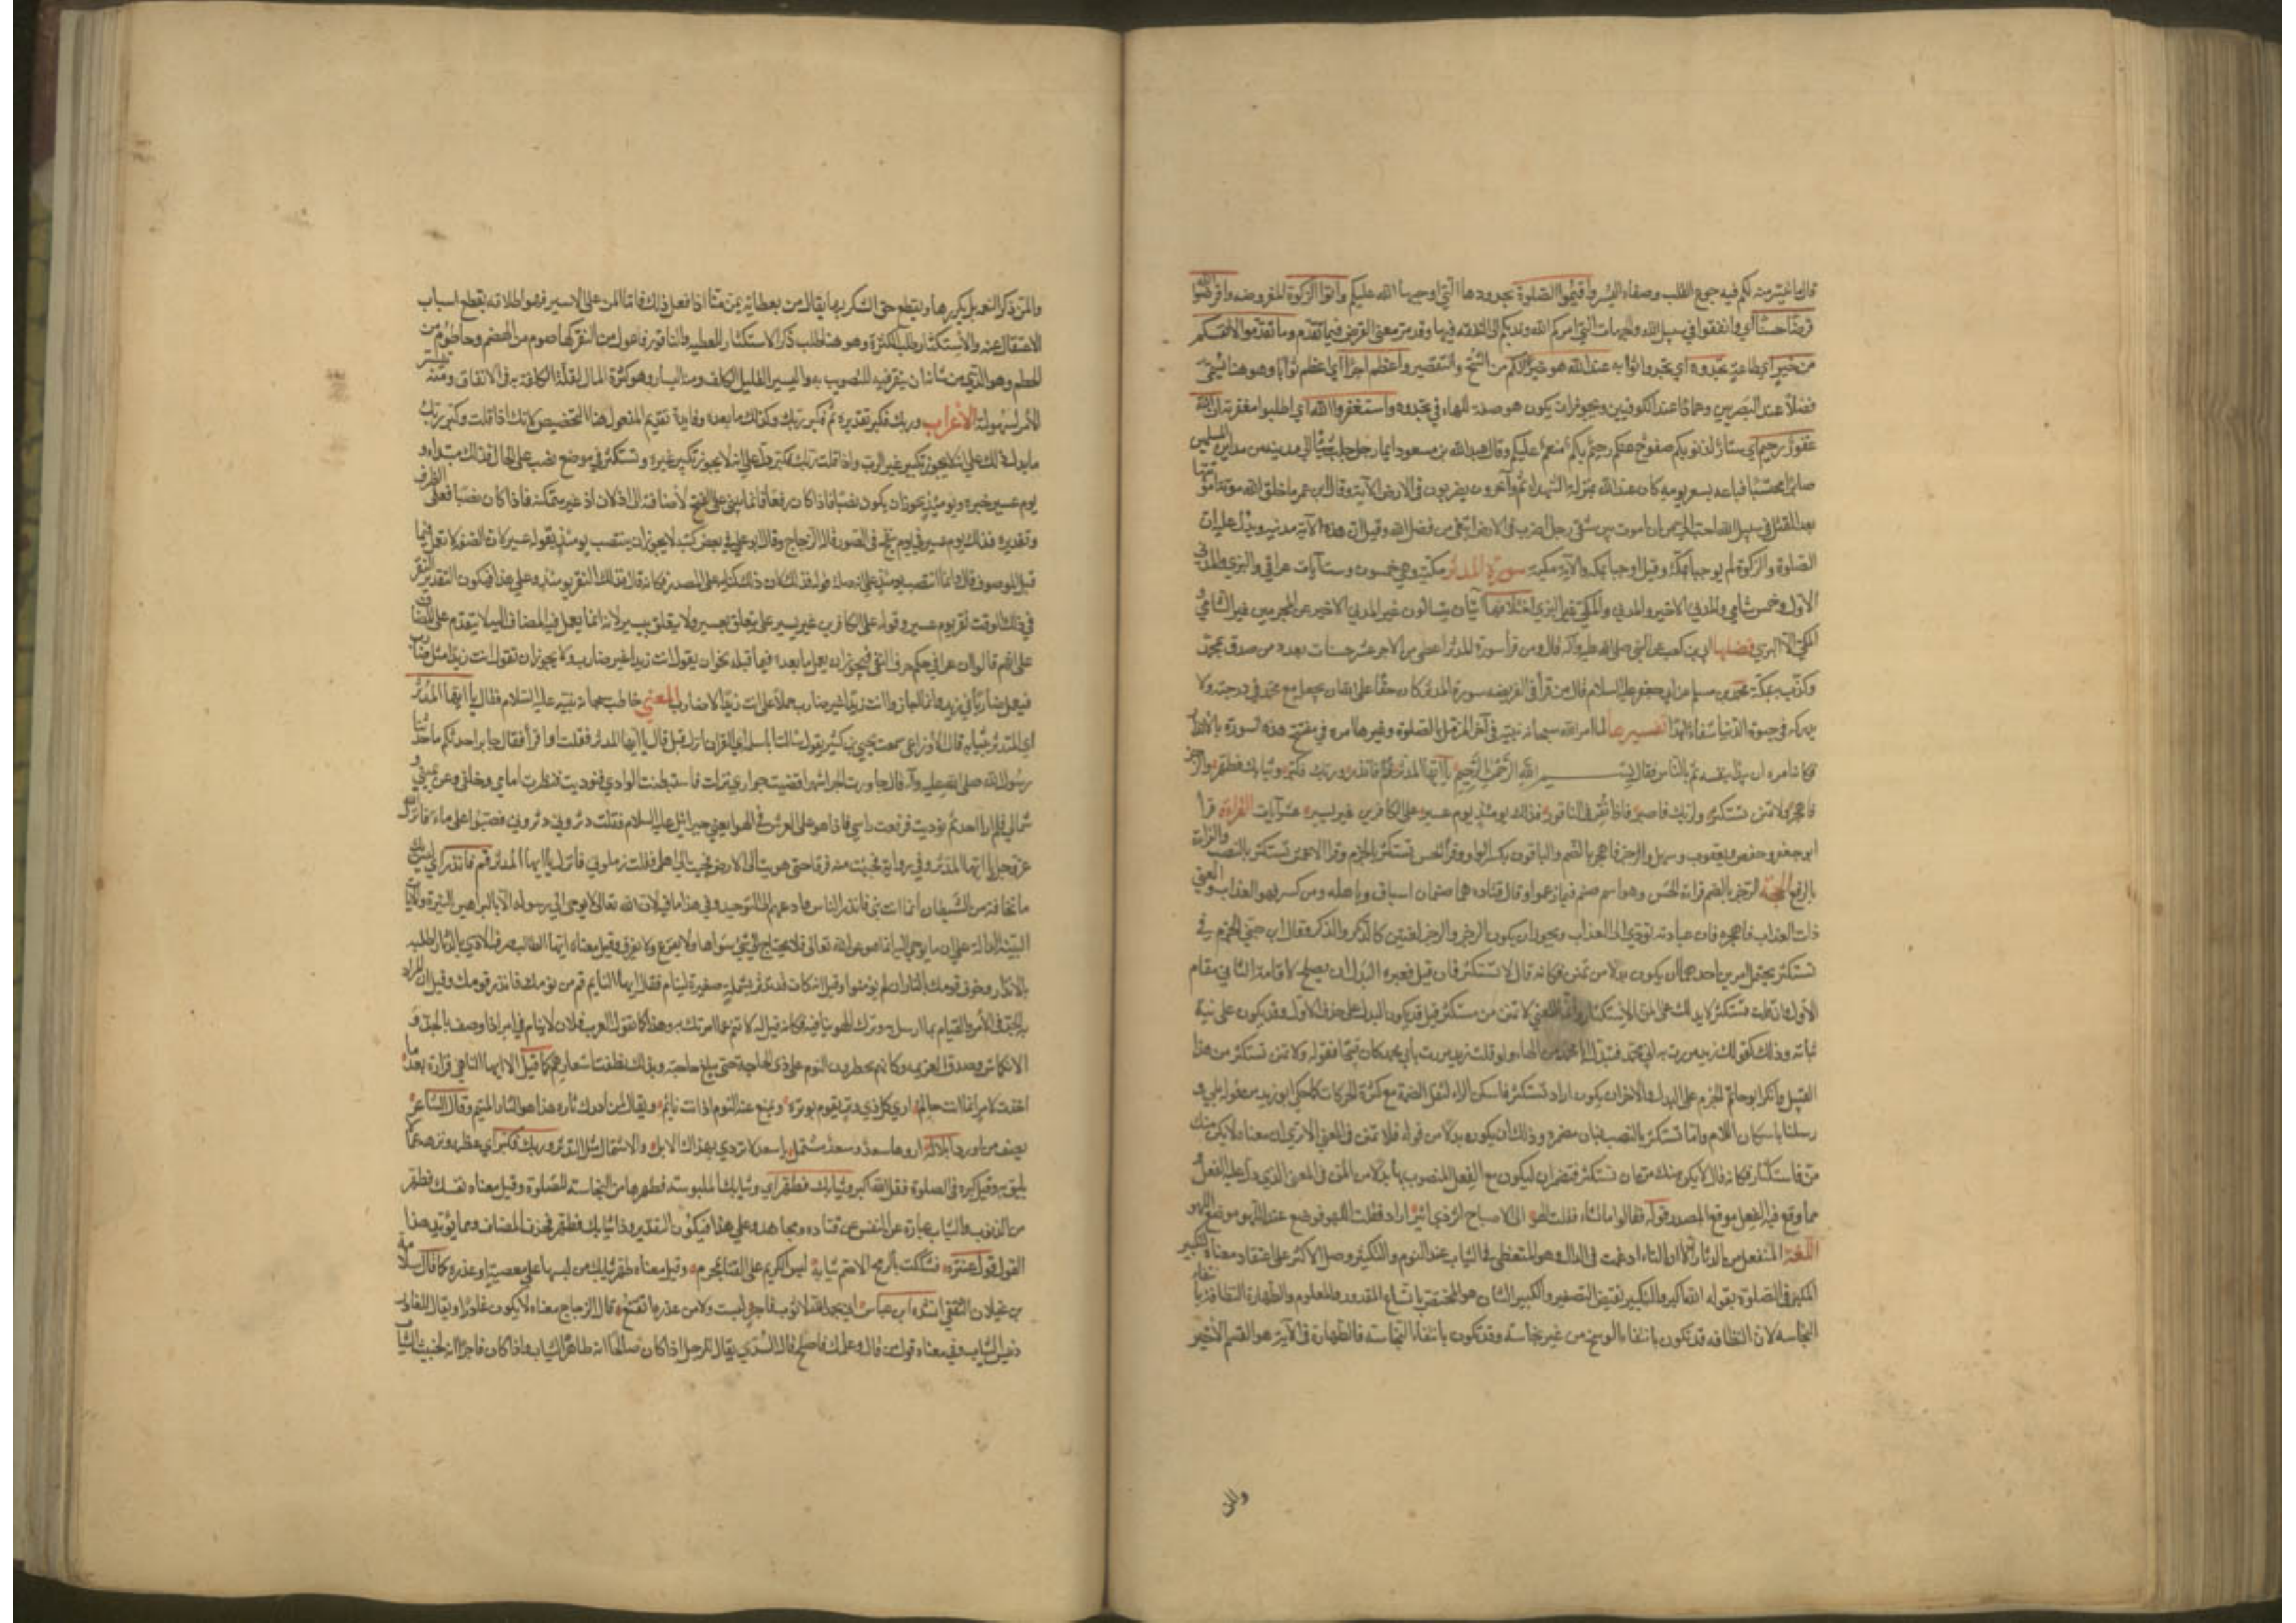 قال ما تيسر منه لكم فيه جموع الطلب وصفاء السر وأقيموا الصلوة بحدودها التي اوجبها الله عليكم وآتوا الزكوة المفروضه وأقرضوا الله
قرضا حسنا أي وانفقوا في سبيل الله والجهات التي امركم الله وندبكم الى النفقه فيها وقد مر معنى القرض فيما تقدم وما تقدموا لانفسكم
من خير اي طاعة تجدوه اي تجدوا ثوابه عند الله هو خيرا لكم من الشح والتقصير وأعظم اجرا اي اعظم ثوابا وهو هنا يسمى
فصلا عند البصريين وعمادا عند الكوفيين ويجوز ان يكون هو صفة للهاء في تجدوه واستغفروا الله اي اطلبوا مغفرته ان الله
غفور رحيم اي ستار لذنوبكم صفوح عنكم رحيم بكم منعم عليكم وقال عبدالله بن مسعود ايما رجل جلب شيئا الى مدينه من مداين المسلمين
صابرا محتسبا فباعه بسعر يومه كان عند الله بمنزلة الشهداء ثم قرأ وآخرون يضربون في الارض الآية وقال ابن عمر ما خلق الله موتة اموتها
بعد القتل في سبيل الله احب الي من ان اموت بين شقي رجل اضرب في الارض ابتغي من فضل الله وقيل ان هذه الآية مدنية ويدل عليه ان
الصلوة والزكوة لم يوجبا بمكة وقيل اوجبا بمكة والآية مكية سورة المدثر مكية وهي خمسون وست آيات عراقي والبزي والمدني
الاول وخمس شامي والمدني الاخير والمكي غير البزي اختلافها آيتان يتسائلون غير المدني الاخير عن المجرمين غير الشامي و
المكي الا البزي فضلها ابي بن كعب عن النبي صلى الله عليه وآله قال ومن قرأ سورة المدثر اعطي من الاجر عشر حسنات بعدد من صدق بمحمد
وكذب به بمكة محمد بن مسلم عن ابي جعفر عليه السلام قال من قرأ في الفريضه سورة المدثر كان حقا على الله ان يجعله مع محمد في درجته ولا
يدركه في حيوة الدنيا شقاء ابدا تفسيرها لما امر الله سبحانه نبيه في آخر المزمل بالصلوة وغيرها امره في مفتتح هذه السورة بالانذار
فكانه امره ان يبدأ بنفسه ثم بالناس فقال بسم الله الرحمن الرحيم يا ايها المدثر قم فانذر وربك فكبر وثيابك فطهر والرجز
فاهجر ولا تمنن تستكثر ولربك فاصبر فاذا نقر في الناقور فذلك يومئذ يوم عسير على الكافرين غير يسير عشر آيات القراءة قرأ
ابو جعفر وحفص ويعقوب وسهل والرجز فاهجر بالضم والباقون بكسر الراء وقرأ الحسن تستكثر بالجزم وقرأ الاعمش تستكثر بالنصب والقراءة
بالرفع الحجة الرجز بالضم قراءة الحسن وهو اسم صنم فيما زعموا وقال قتاده هما صنمان اساف ونايلة ومن كسر فهو العذاب والمعنى
ذات العذاب فاهجر فان عبادته تؤدي الى العذاب ويجوز ان يكون الرجز والرجز لغتين كالذكر والذكر وقال ابن جني الجزم في
تستكثر يحتمل امرين احدهما ان يكون بدلا من تمنن فكانه قال لا تستكثر فان قيل فعبرة البدل ان يصلح لاقامة الثاني مقام
الاول وانت لو قلت فتستكثر لا يدلك على المن للاستكثار وانما المعنى لا تمنن من مستكثر قيل قد يكون البدل على حذف الاول وقد يكون على نية
ثباته وذلك كقولك زيد مررت به ابي محمد فتبدل ابا محمد من الهاء ولو قلت زيد مررت بابي محمد كان قبيحا فقوله ولا تمنن تستكثر من هذا
القبيل وانكر ابو حاتم الجزم على البدل والآخر ان يكون اراد تستكثر فاسكن الراء لثقل الضمة مع كثرة الحركات كما حكى ابو زيد من قوله بلى و
رسلنا باسكان اللام واما تستكثر بالنصب فبان مضمرة وذلك ان يكون بدلا من قوله فلا تمنن في المعنى الا ترى ان معناه لا يكن منك
من فاستكثار فكانه قال لا يكن منك من ان تستكثر فتضمر ان ليكون مع الفعل المنصوب بها بدلا من المن في المعنى الذي دل عليه الفعل
مما وقع فيه الفعل موقع المصدر قوله فقالوا ما تشاء فقلت الهو الى الاصباح آثر ذي اثير اراد فقلت اللهو فوضع عند الهو موضع اللهو
اللغة المتفعل من الدثار الا ان التاء ادغمت في الدال وهو المتغطي بالثياب عند النوم والتكبير وصف الاكبر على اعتقاد معناه كتكبير
المكبر في الصلوة بقوله الله اكبر والتكبير نقيض التصغير والكبير الشان هو المختص باتساع المقدور والمعلوم والطهارة النظافة بانتفاء
النجاسه لان النظافه قد تكون بانتفاء الوسخ من غير نجاسة وقد تكون بانتفاء النجاسة فالطهارة في الآية هو القسم الاخير
والمن
والمن ذكر النعمة بما يكررها ويقطع حق الشكر بها يقال من بعطائه يمن منا اذا فعل ذلك فاما المن على الاسير فهو اطلاقه بقطع اسباب
الاعتقال عنه والاستكثار طلب الكثرة وهو هنا طلب ذكر الاستكثار للعطية والناقور فاعول من النقر كهاضوم من الهضم وحاطوم من
الحطم وهو الذي من شانه ان ينقر فيه للتصويت به واليسير القليل الكلف ومنه اليسار وهو كثرة المال لقلة الكلفة به في الانفاق ومنه تيسر
الامر لسهولته الاعراب وربك فكبر تقديره قم فكبر ربك وكذلك ما بعده وفايدة تقديم المفعول هنا التخصيص لانك اذا قلت وكبر ربك
ما يدل ذلك على انه لا يجوز تكبير غير الرب واذا قلت ربك فكبر دل على انه لا يجوز تكبير غيره وتستكثر في موضع نصب على الحال فذلك مبتداء و
يوم عسير خبره ويومئذ يجوز ان يكون نصبا فاذا كان رفعا فانما يبنى على الفتح لاضافته الى اذ لان اذ غير متمكنة فاذا كان نصبا فعلى الظرف
وتقديره فذلك يوم عسير في يوم ينفخ في الصور قاله الزجاج وقال ابو علي في بعض كتبه لا يجوز ان ينتصب يومئذ بقوله عسير لان الصفة لا تعمل فيما
قبل الموصوف قال وانما انتصب يومئذ على انه صلة قوله فذلك لان ذلك كناية على المصدر فكانه قال فذلك النقر يومئذ وعلى هذا فيكون التقدير فذلك النقر
في ذلك الوقت نقر يوم عسير وقوله على الكافرين غير يسير على يتعلق بعسير ولا يتعلق بيسير لانه انما يعمل فيه المضاف اليه لا يتقدم على المضاف
على انهم قالوا ان غيرا في حكم حرف النفي فيجوز ان يعمل ما بعده فيما قبله نحو ان يقول انت زيدا غير ضارب ولا يجوز ان تقول انت زيدا مثل ضارب
فيعمل ضاربا في زيد وانما اجازوا انت زيدا غير ضارب حملا على انت زيدا لا ضارب المعنى خاطب سبحانه نبيه عليه السلام فقال يا ايها المدثر
اي المتدثر بثيابه قال الاوزاعي سمعت يحيى بن كثير يقول سالت ابا سلمة اي القرآن انزل قبل قال يا ايها المدثر فقلت أو اقرأ فقال جابر احدثكم ما حدثنا
رسول الله صلى الله عليه وآله قال جاورت بحراء شهرا فلما قضيت جواري نزلت فاستبطنت الوادي فنوديت فنظرت امامي وخلفي وعن يميني و
شمالي فلم ار احدا ثم نوديت فرفعت راسي فاذا هو على العرش في الهوا يعني جبرائيل عليه السلام فقلت دثروني دثروني فصبوا علي ماء فانزل الله
عز وجل يا ايها المدثر وفي رواية فجئيت منه فرقا حتى هويت الى الارض فجئت الى اهلي فقلت زملوني فانزل يا ايها المدثر قم فانذر اي ليس بك
ما تخافه من الشيطان انما انت نبي فانذر الناس وادعهم الى التوحيد وفي هذا ما فيه لان الله تعالى لا يوحي الى رسوله الا بالبراهين النيرة والآيات
البينة الدالة على ان ما يوحى اليه انما هو من الله تعالى فلا يحتاج الى شيء سواها ولا يفزع ولا يفرق وقيل معناه ايها الطالب صرف الاذى بالدثار اطلبه
بالانذار وخوف قومك بالنار ان لم يؤمنوا وقيل انه كان قد تدثر بشملة صغيرة لينام فقال يا ايها النايم قم من نومك فانذر قومك وقيل ان المراد
به الجد في الأمر والقيام بما ارسل به وترك الهوينا فيه فكانه قيل له لا تنم عما امرتك به وهذا كما تقول العرب فلان لا ينام في امر اذا وصف بالجد و
الانكماش وصدق العزيمه وكانهم يحظرون النوم على ذي الحاجة حتى يبلغ حاجته وبذلك نطقت اشعارهم كما قيل الا ايها الناهي فزارة بعد ما
اجدت لامر انما انت حالم ارى كل ذي وتر يقوم بوتره ويمنع عنه النوم اذا انت نائم ويقال لمن ادرك ثاره هذا هو الثار المنيم وقال الشاعر
يصف من اورد ابلا له اوردها سعد وسعد مشتمل يا سعد لا تروى بهذاك الابل والاشتمال مثل التدثر وربك فكبر اي عظمه ونزهه عما لا
يليق به وقيل كبره في الصلوة فقل الله اكبر وثيابك فطهر اي وثيابك الملبوسة فطهرها من النجاسة للصلوة وقيل معناه نفسك فطهر
من الذنوب والثياب عبارة عن النفس عن قتاده ومجاهد وعلى هذا فيكون التقدير وذا ثيابك فطهر فحذف المضاف ومما يؤيد هذا
القول قول عنترة فشككت بالرمح الاصم ثيابه ليس الكريم على القنا بمحرم وقيل معناه طهر ثيابك من لبسها على معصية او غدرة كما قال سلامة
بن غيلان الثقفي انشده ابن عباس اني بحمد الله لا ثوب فاجر لبست ولا من غدرة اتقنع قال الزجاج معناه لا يكون غادرا ويقال للغادر
دنس الثياب وفي معناه قول من قال وعملك فاصلح قال السدي يقال للرجل اذا كان صالحا انه طاهر الثياب واذا كان فاجرا انه لخبيث الثياب